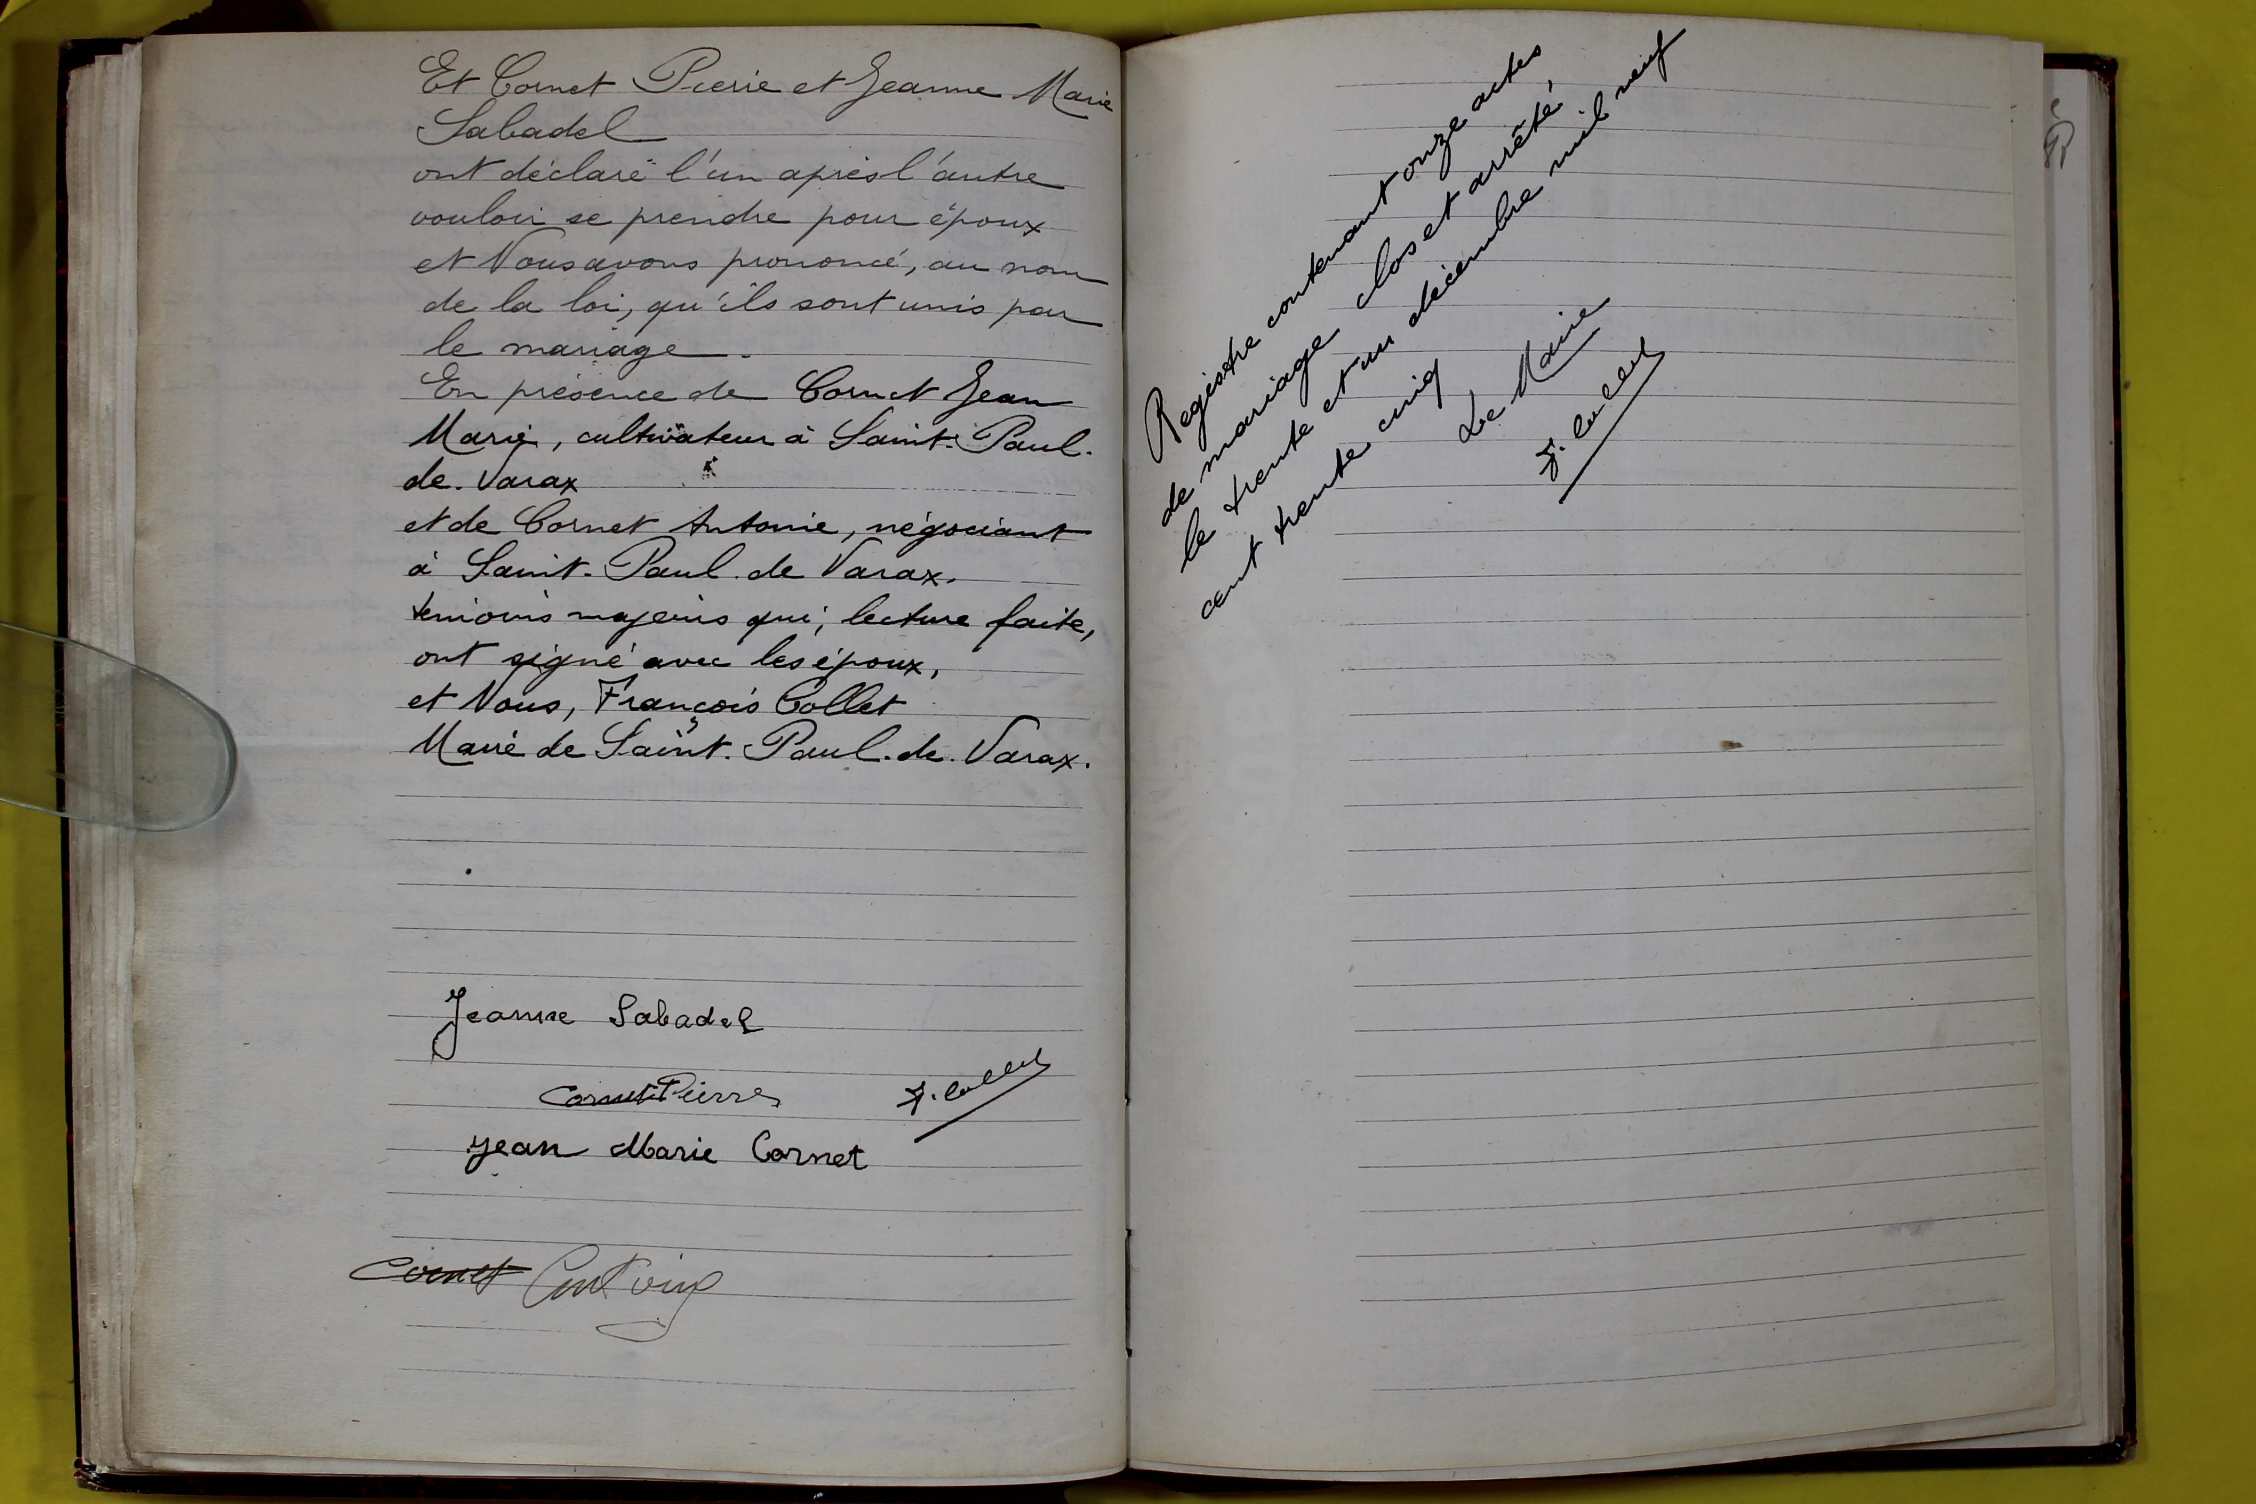 Et Cornet Pierre et Jeanne Marie
Sabadel
ont déclaré l'un après l'autre
vouloir se prendre pour époux
et Nous avons prononcé, au nom
de la loi, qu'ils sont unis par
le mariage.
En présence de Cornet Jean
Marie, cultivateur à Saint-Paul-
de-Varax
et de Cornet Antoine, négociant
à Saint-Paul-de Varax.
témoins majeurs qui, lecture faite,
ont signé avec les époux,
et Nous, François Collet
Maire de Saint-Paul-de-Varax.
Jeanne Sabadel
Cornet Pierre
F. Collet
Jean Marie Cornet
Cornet Antoine
Registre contenant onze actes
de mariage clos et arrêté,
le trente et un décembre mil neuf
cent trente cinq
Le Maire
F. Collet